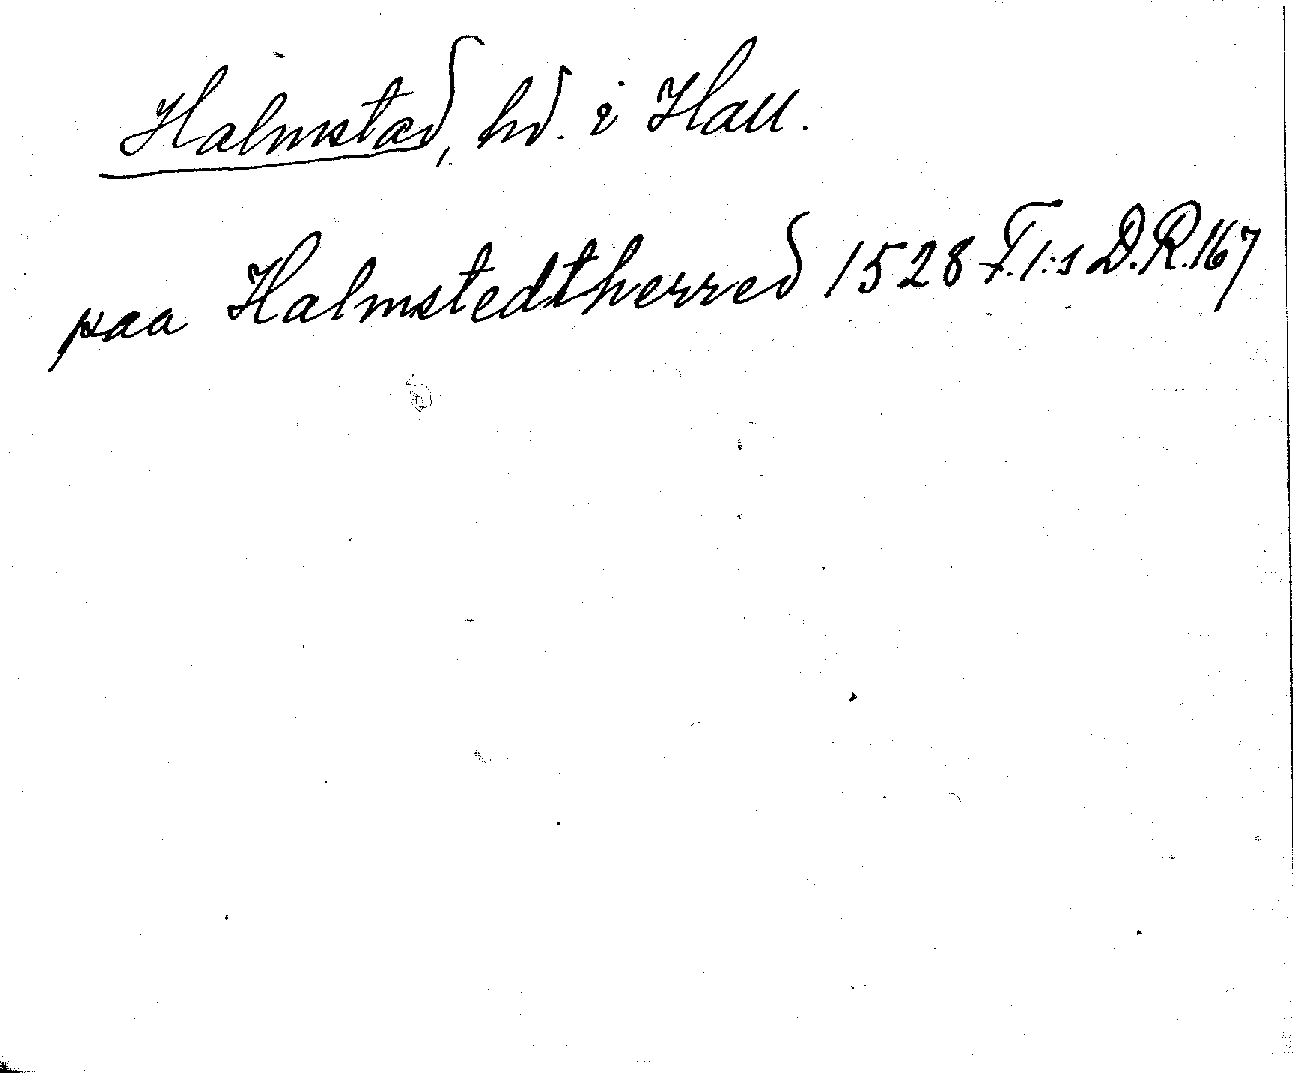 Halmstad, hd. i Hall.
paa Halmstedtherred 1528 F.1:s D.R.167